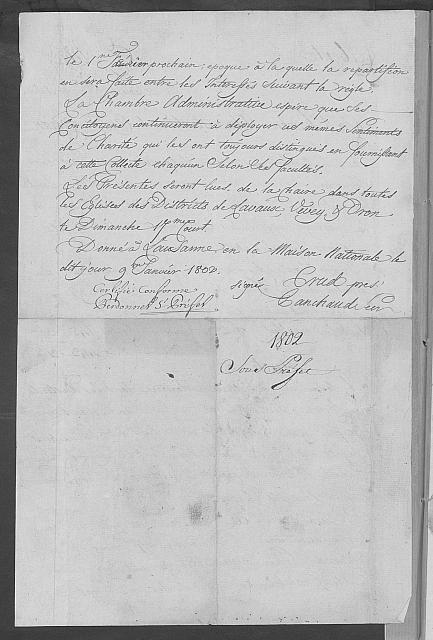 le 1er Janvier prochain; epoque à la quelle la repartission
en sera faite entre les Interessés suivant la régle,
La Chambre Administrative espére que ses
Concitoyens continueront à déployer ces mêmes Sentiments
de Charité qui les ont toujours distingués en fournissant
à cette Collecte chaqu'un Selon ses facultés.
Les Présentes seront lues, de la chaire dans toutes
les Eglises des Districts de Lavaux, Vevey, & Oron
le Dimanche 17eme Court.
Donné à Lausanne, en la Maison Nationale le
dit jour 9 Janvier 1802.
signés Crud pres'
Certifié Conforme
Perdonnet S' Préfet
1802
Sous Préfet